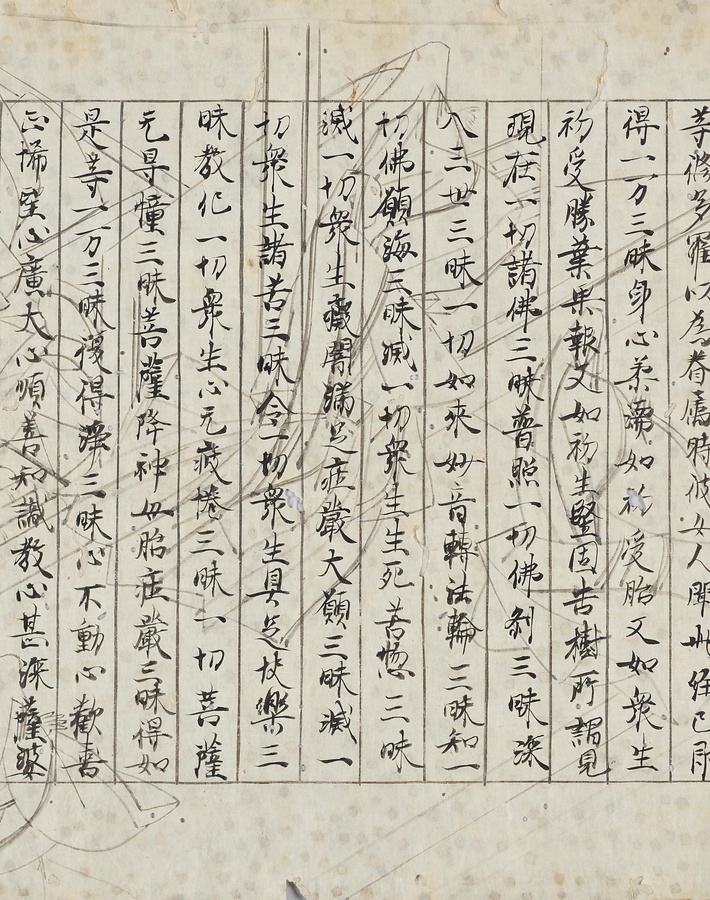 等修多羅以為眷属時彼女人聞此經已即
得一万三昧身心柔濡如初受胎又如衆生
初受勝葉果報又如初生堅固吉樹所謂見
現在一切諸佛三昧普照一切佛刹三昧深
入三世三昧一切如來妙音轉法輪三昧知一
切佛願海三昧滅一切衆生生死苦惱三昧
滅一切衆生癡闇滿足症嚴大願三昧滅一
切衆生諸苦三昧令一切衆生具足快樂三
昧教化一切衆生心无疲惓三昧一切菩薩
无㝵幢三昧菩薩降神母胎症嚴三昧得如
是等一万三昧復得淨三昧心不動心歡喜
心悕望心廣大心順善知識教心甚深薩婆